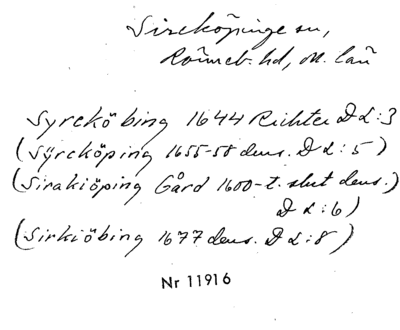 Sireköpinge sn,
Rönneb. hd, M. län
Syreköbing 1644 Richter D L:3
(Syrcköping 1655-58 dens. D L:5)
(Sirakiöping Gård 1600-t. slut dens.)
D L:6)
(Sirkiöbing 1677 dens. D L:8)
Nr 11916